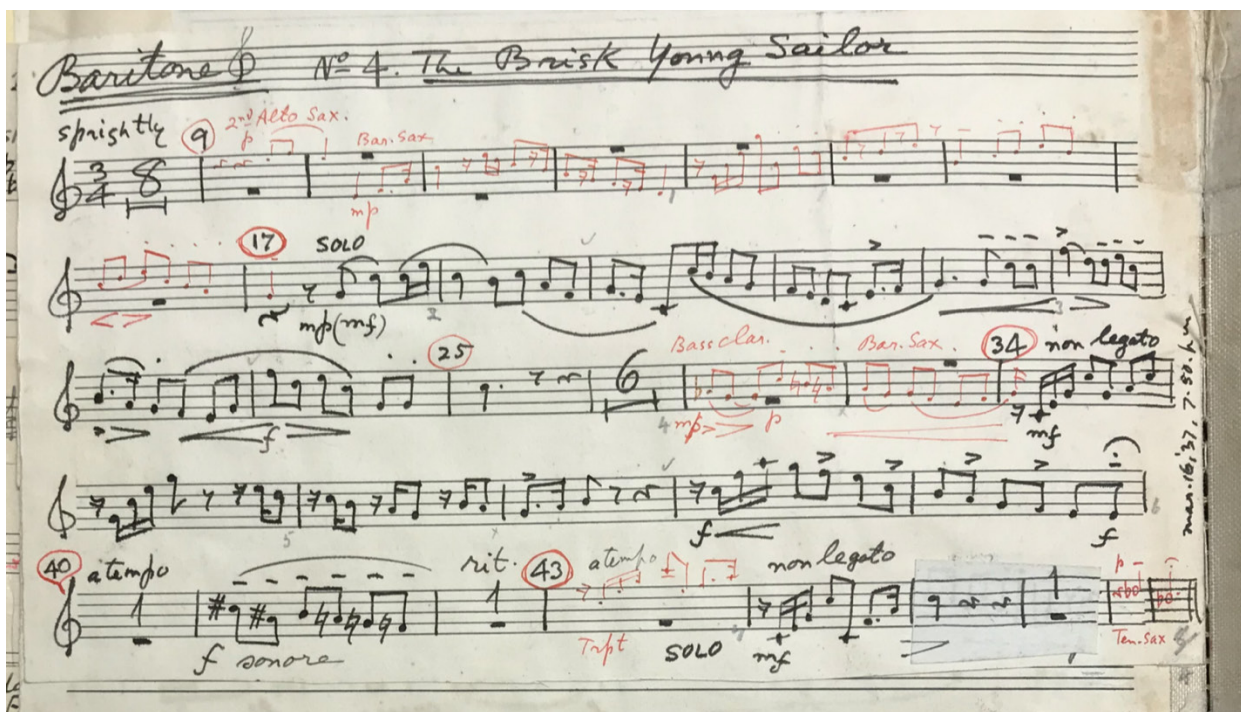 Baritone No 4. The Brisk Young Sailor
sprightly 9 2nd Alto Sax.
p Bar. Sax
3 4 8
mp
17 SOLO
mp (mf) 2 3
25 Bass Clar. Bar. Sax 34 non legato
6
f 4 mp p mf
5 6
f f
40 a tempo rit. 43 a tempo non legato p
1 1 1
f sonore Trpt SOLO mf Ten. Sax 8
mar. 16, '37, 7.50. p.m